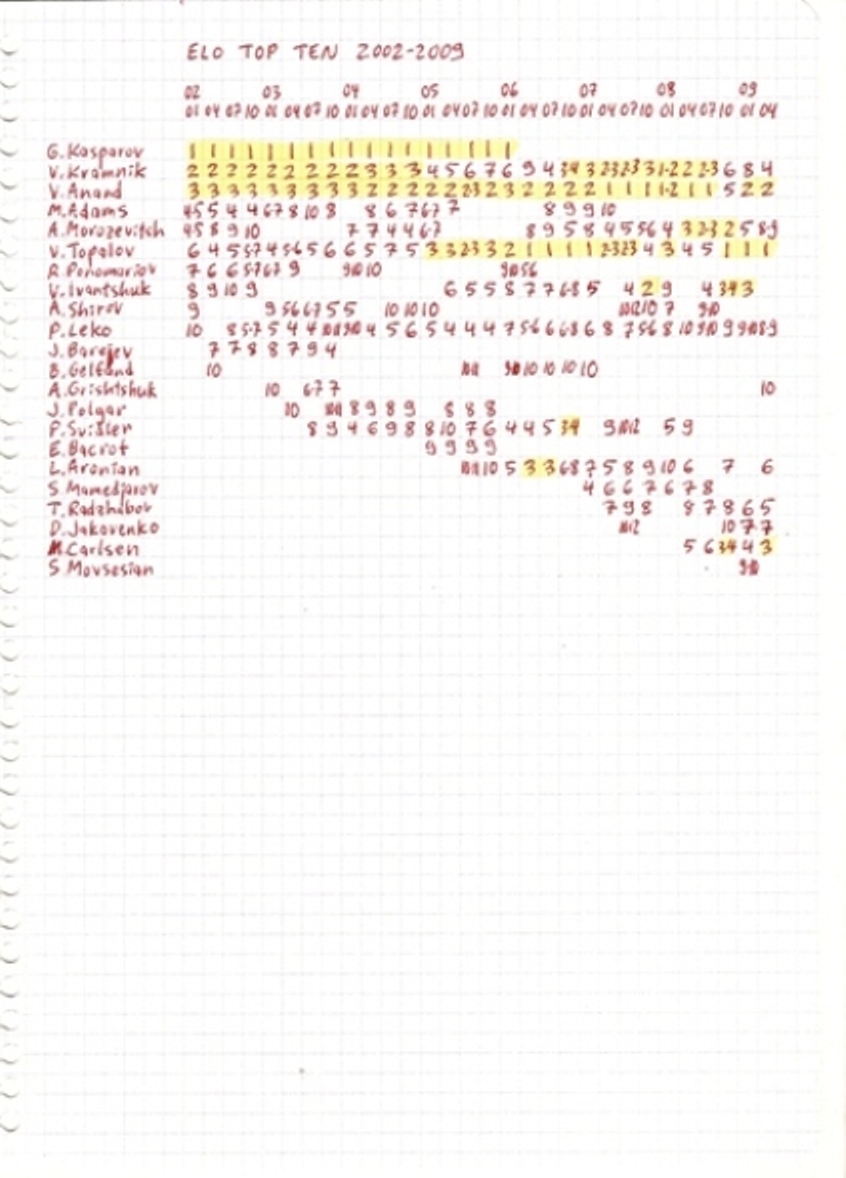 ELO TOP TEN 2002-2009
02 03 04 05 06 07 08 09
01 04 07 10 01 04 07 10 01 04 07 10 01 04 07 10 01 04 07 10 01 04 07 10 01 04 07 10 01 04
G.Kasparov 1 1 1 1 1 1 1 1 1 1 1 1 1 1 1 1 1
V.Kramnik 2 2 2 2 2 2 2 2 2 3 3 3 4 5 6 7 6 9 4 34 3 23 23 3 1-2 2 2-3 6 8 4
V.Anand 3 3 3 3 3 3 3 3 3 2 2 2 2 2 23 2 3 2 2 2 2 1 1 1 1-2 1 1 5 2 2
M.Adams 45 5 4 4 67 8 10 8 8 6 7 67 7 8 9 9 10
A.Morozevitch 45 8 9 10 7 7 4 4 67 8 9 5 8 4 5 56 4 3 2-3 2 5 8-9
V.Topalov 6 4 5 57 4 56 5 6 6 5 7 5 3 3 23 3 2 1 1 1 1 23 23 4 3 4 5 1 1 1
R.Ponomariov 7 6 6 57 67 9 910 10 9 56
V.Ivantshuk 8 9 10 9 6 5 5 8 7 7 68 5 4 2 9 4 34 3
A.Shirov 9 9 56 67 5 5 10 10 10 7
P.Leko 10 8 57 5 4 4 4 5 6 5 4 4 4 7 56 6 68 6 8 7 56 8 10 9
J.Barejev 7 7 8 8 7 9 4
B.Gelfand 10 10 10 10 10
A.Grishtshuk 10 67 7 10
J.Polgar 10 8 9 8 9 8 8 8
P.Svidler 8 9 4 6 9 8 8 10 7 6 4 4 5 34 9 5 9
E.Bacrot 9 9 9 9
L.Aronian 10 5 3 3 68 7 5 8 9 10 6 7 6
S.Mamedjarov 4 6 6 7 6 7 8
T.Radzhabov 7 9 8 8 7 8 6 5
D.Jakovenko 10 7 7
M.Carlsen 5 6 34 4 3
S.Movsesian